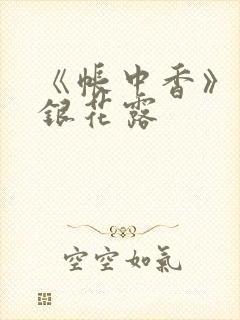 《帳中香》
銀花露
空空如氣